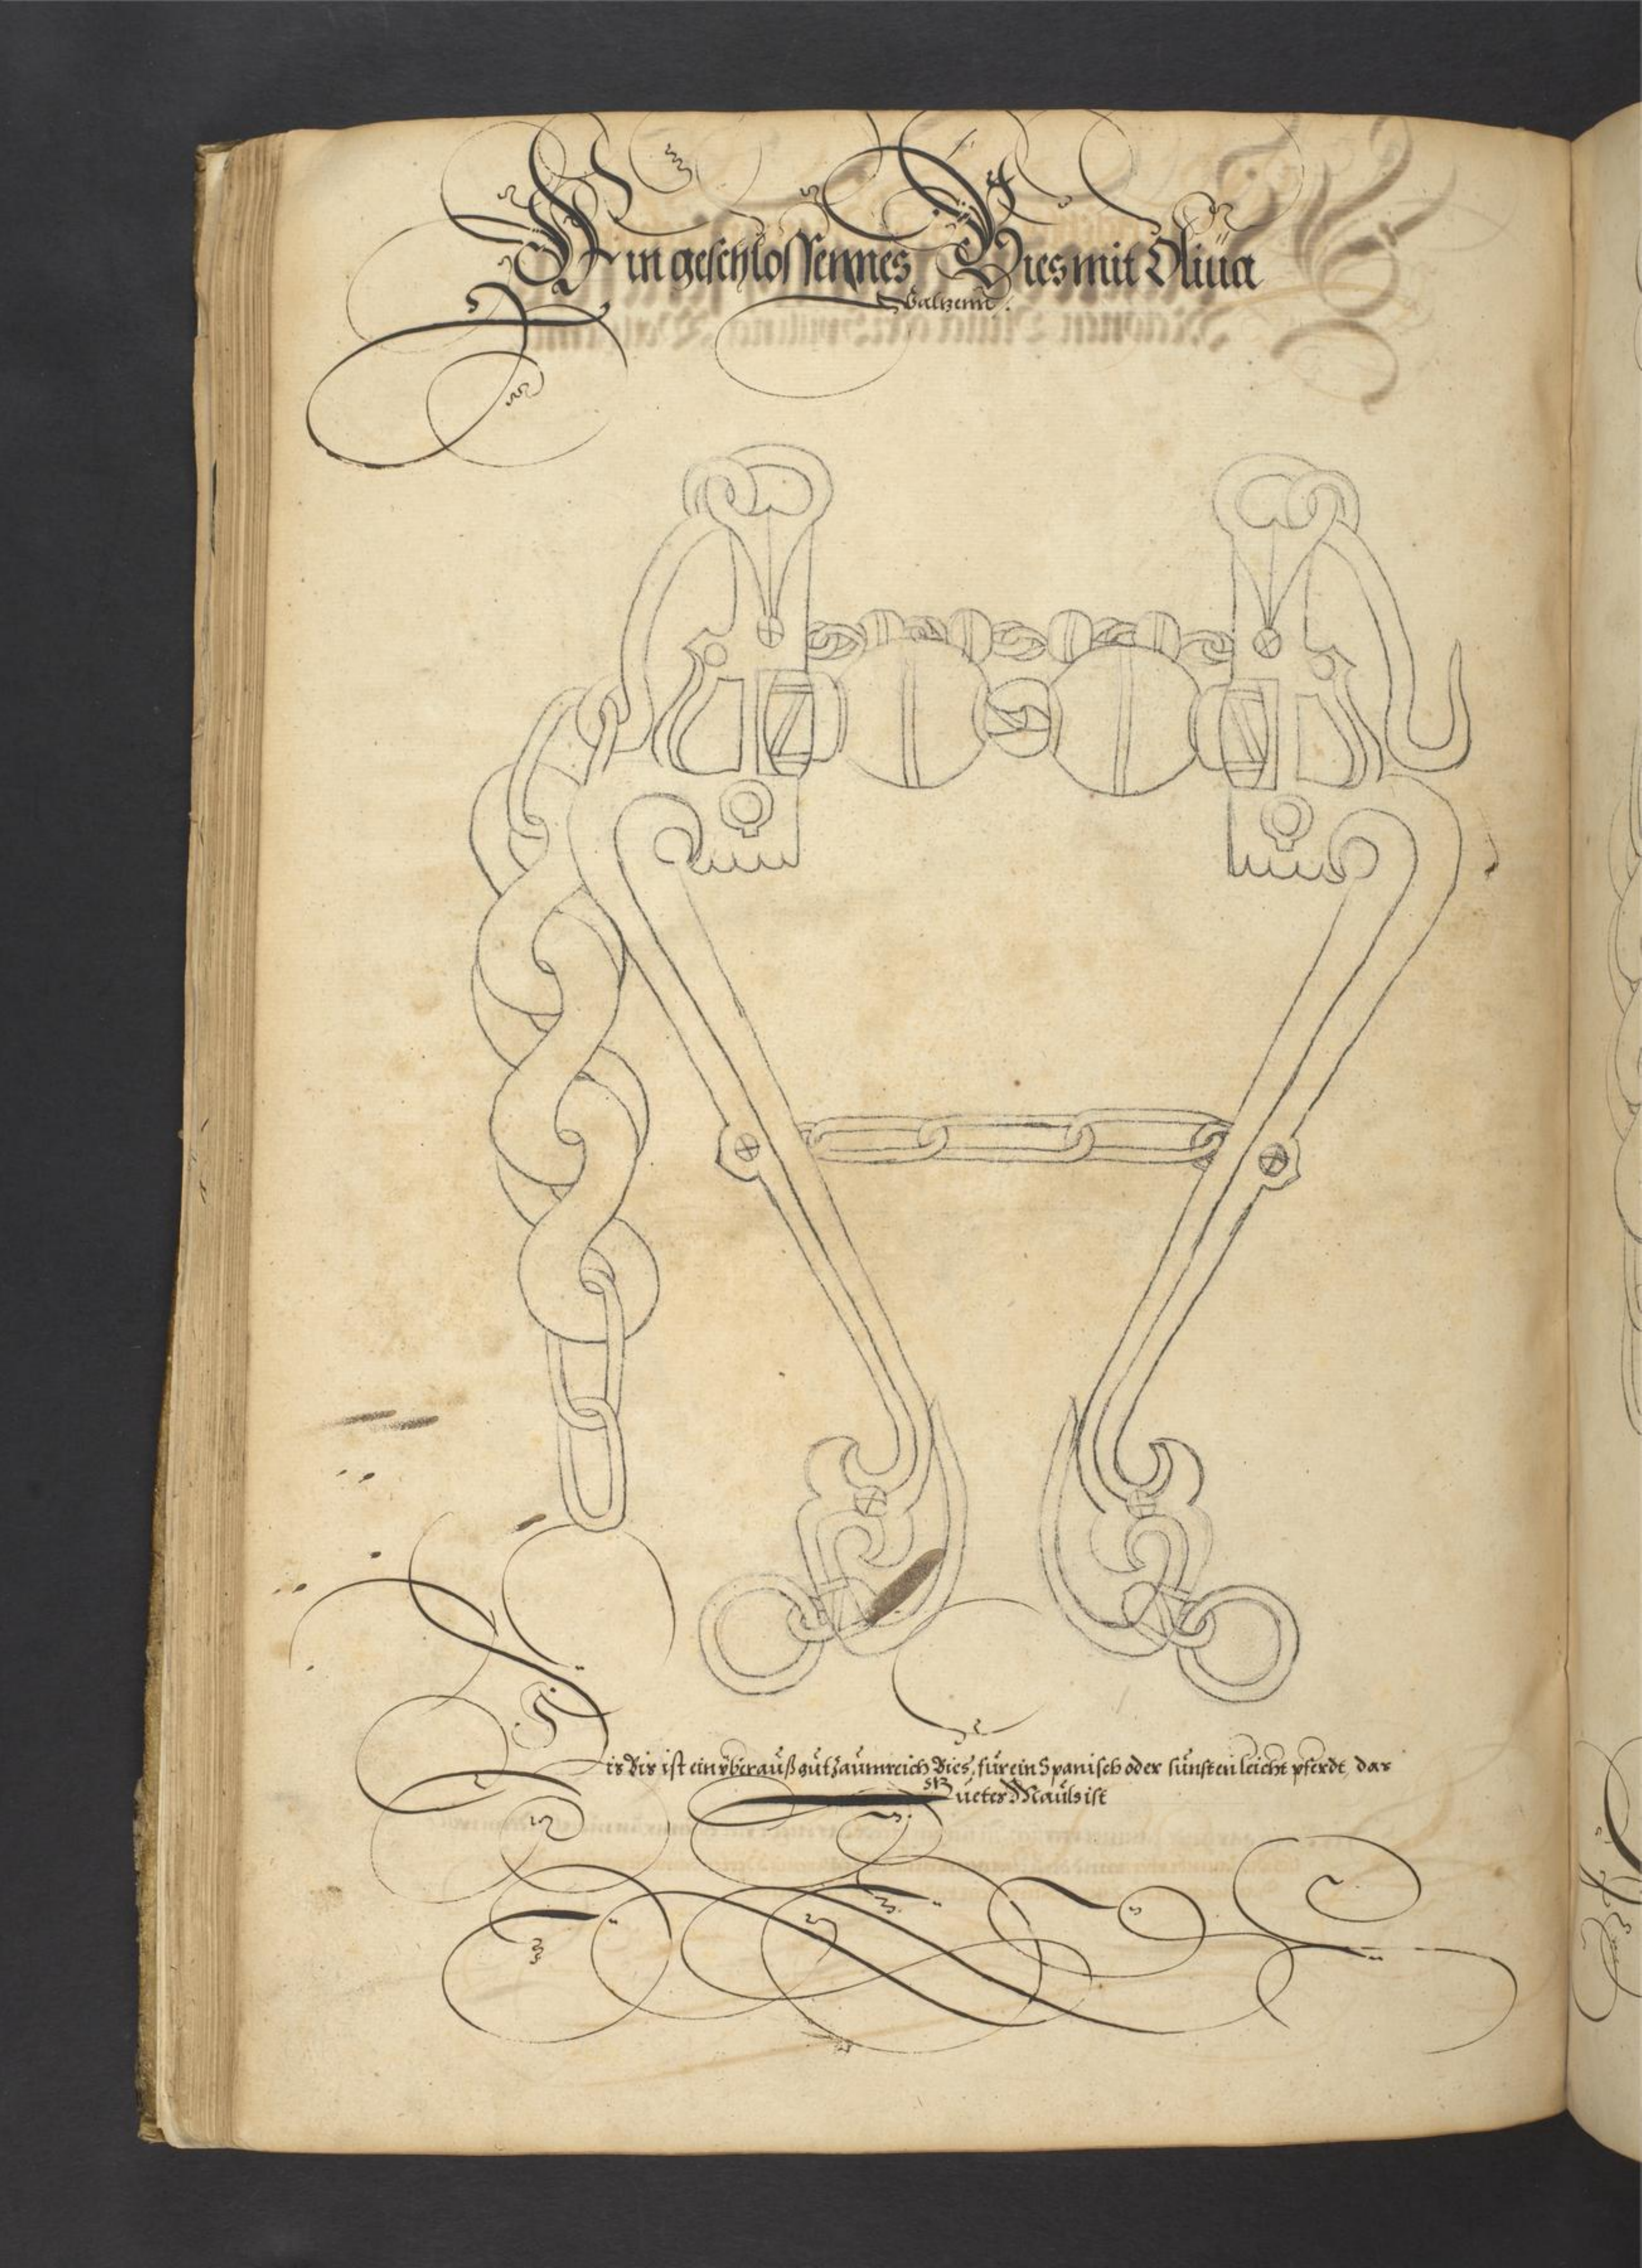 Ein geschlossennes Bies mit Oliua
Galzenn.
Dis Bis ist ein ÿberauß gut Zaumreich Bies, für ein Spanisch oder sünsten leicht pferdt, das
gueter Mauls ist